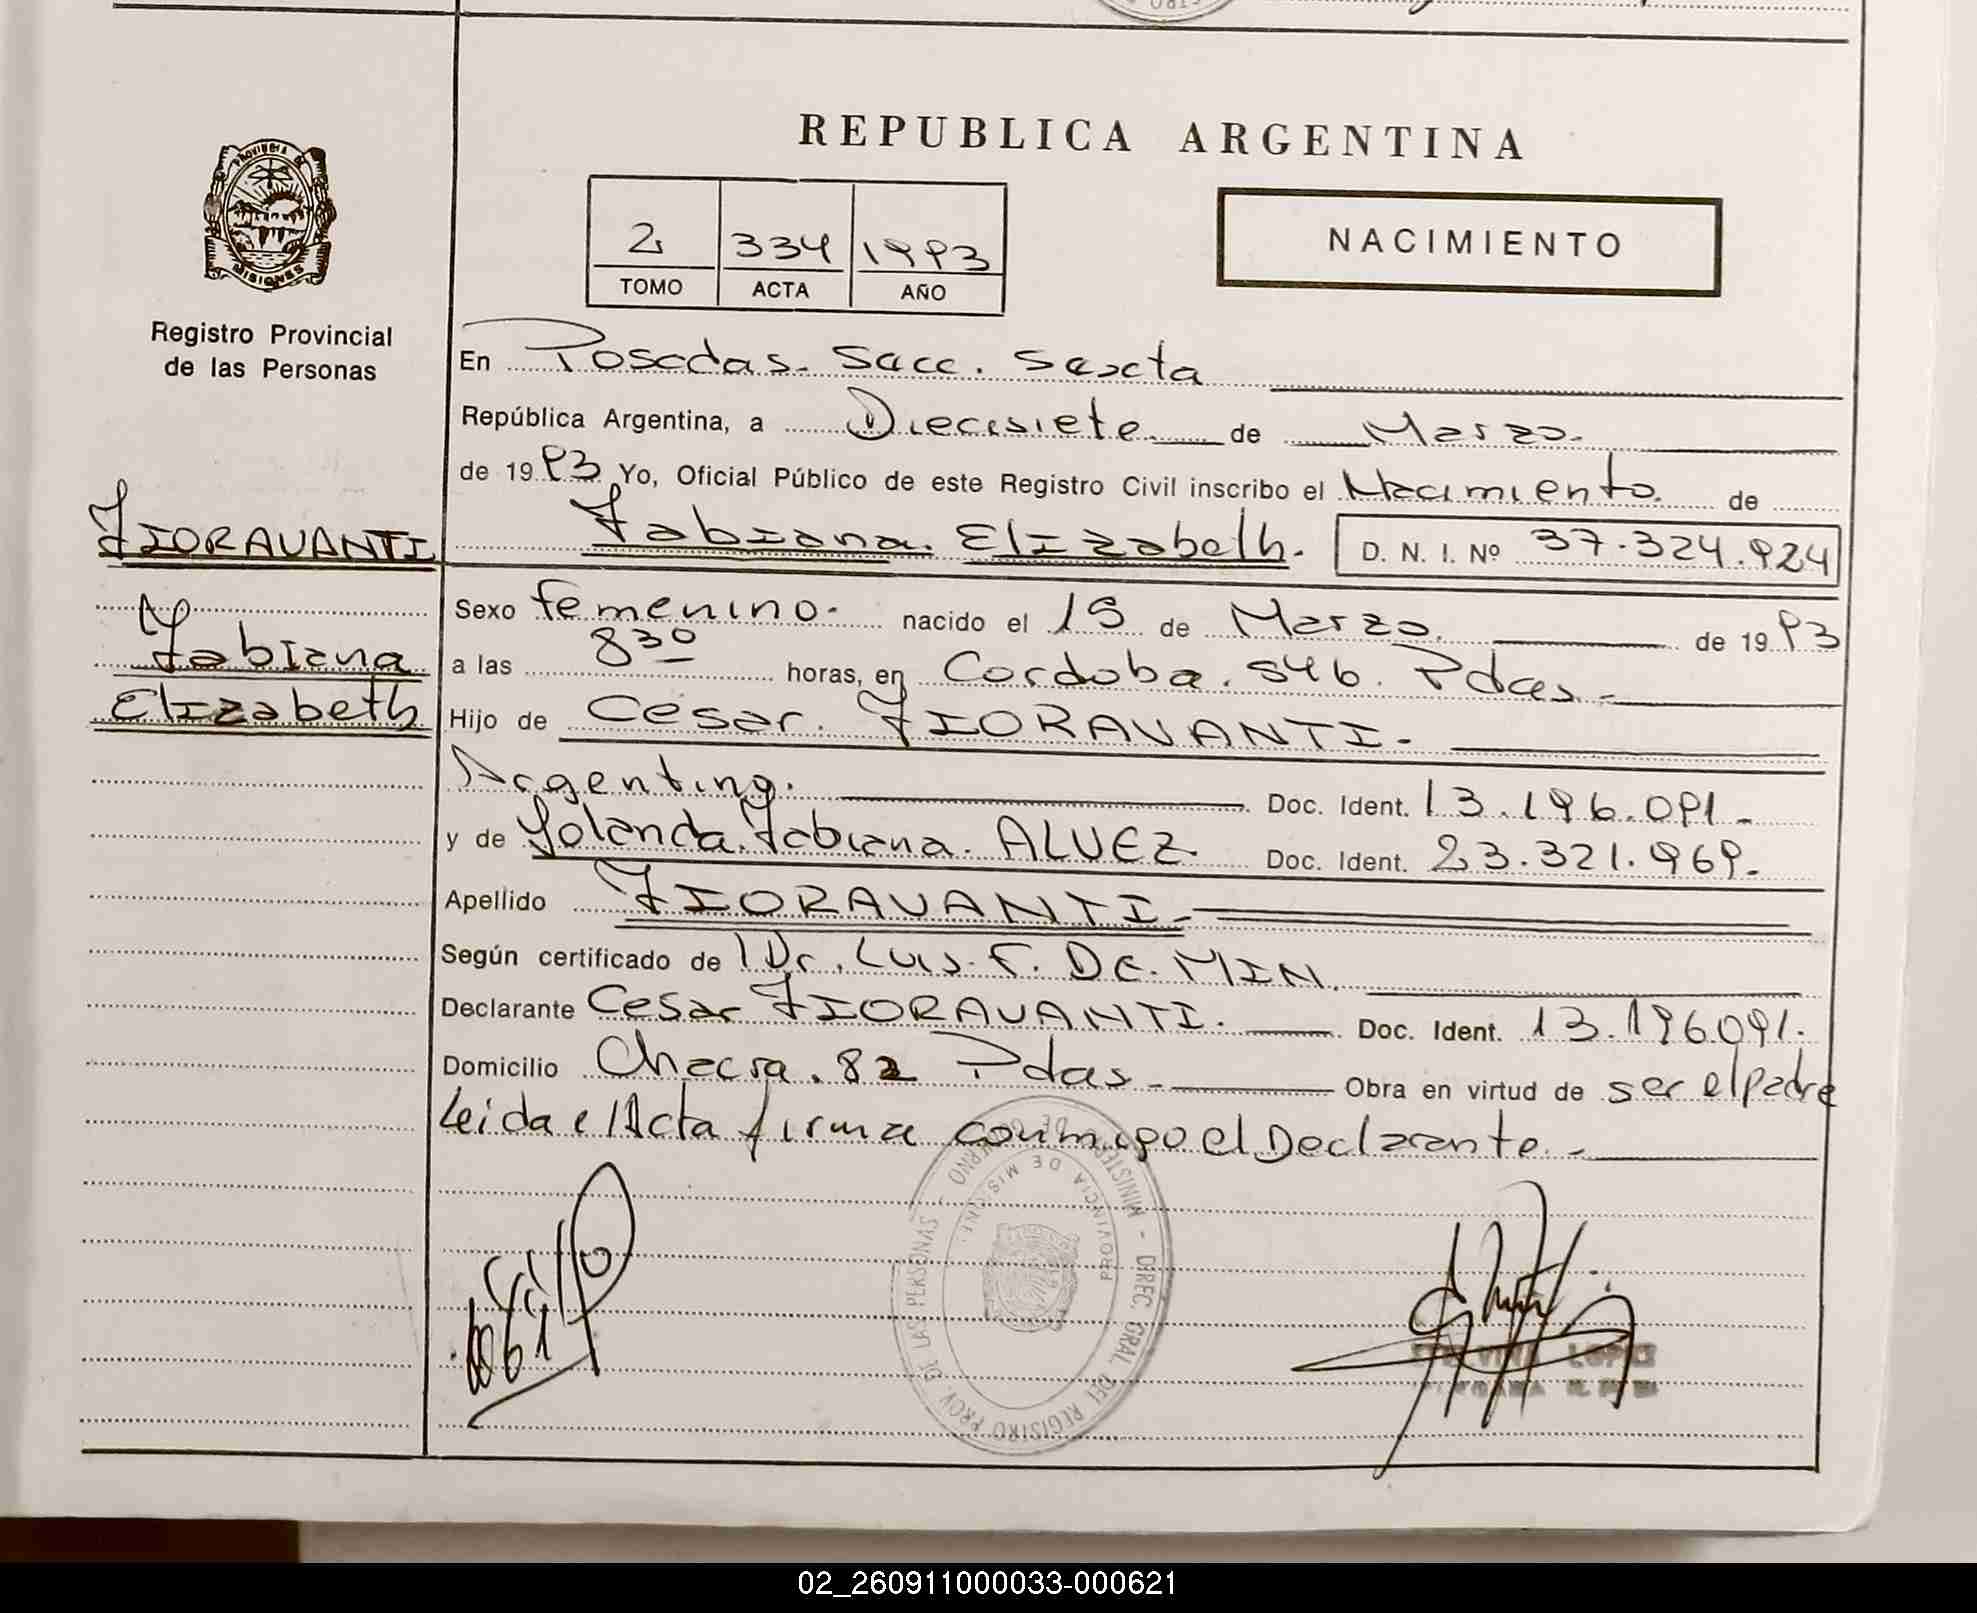 REPUBLICA ARGENTINA
PROVINCIA DE
MISIONES
Registro Provincial
de las Personas
2 334 1993
TOMO ACTA AÑO
NACIMIENTO
En Posadas. Secc. Sexta
República Argentina, a Diecisiete de Marzo.
de 1993 Yo, Oficial Público de este Registro Civil inscribo el Nacimiento. de
FIORAVANTI
Fabiana Elizabeth
Fabiana. Elizabeth. D. N. I. Nº 37.324.924
Sexo femenino. nacido el 15 de Marzo. de 1993
a las 8 30 horas, en Cordoba. 546. Pdas.-
Hijo de César. FIORAVANTI.-
Argentino. Doc. Ident. 13.196.091.-
y de Yolanda. Fabiana. ALVEZ. Doc. Ident. 23.321.969.-
Apellido FIORAVANTI.-
Según certificado de Dr. Luis. F. DE. MIN.
Declarante Cesar FIORAVANTI. Doc. Ident. 13.196091.
Domicilio Chacra. 82 Pdas.- Obra en virtud de ser el padre
Leida el Acta firma conmigo el Declarante.-
MINISTERIO DE GOBIERNO - DIREC. GRAL. DEL REGISTRO PROV. DE LAS PERSONAS
PROVINCIA DE MISIONES
LOPEZ
02_260911000033-000621